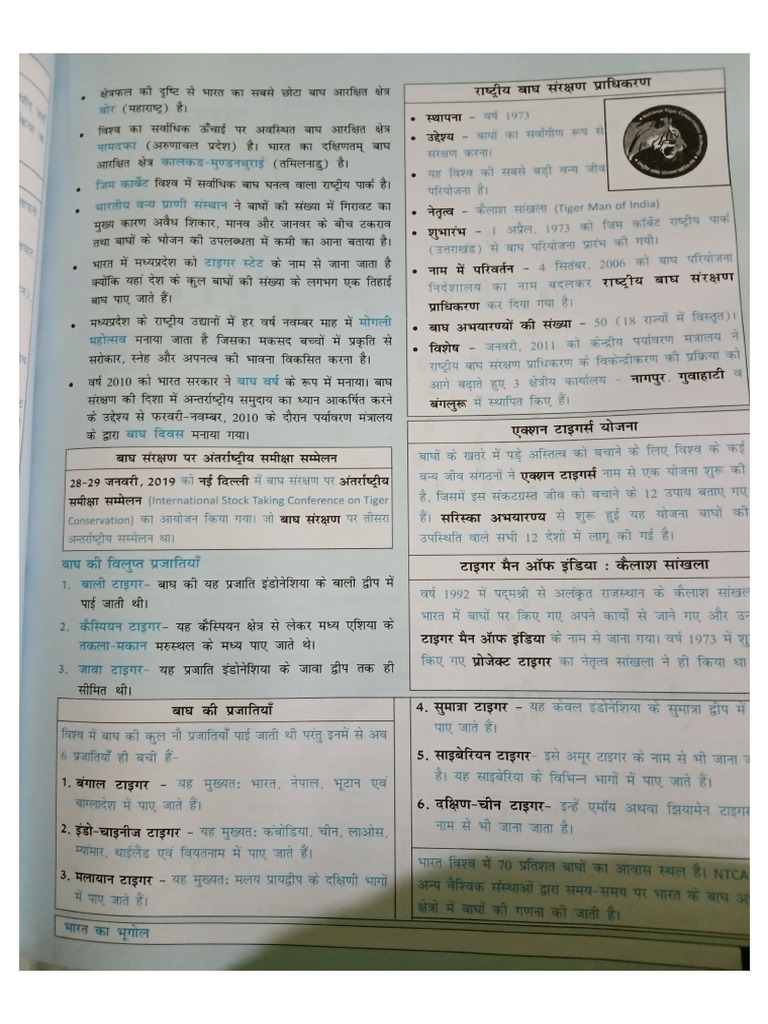 • क्षेत्रफल की दृष्टि से भारत का सबसे छोटा बाघ आरक्षित क्षेत्र
बोर (महाराष्ट्र) है।
• विश्व का सर्वाधिक ऊँचाई पर अवस्थित बाघ आरक्षित क्षेत्र
नामदफा (अरुणाचल प्रदेश) है। भारत का दक्षिणतम् बाघ
आरक्षित क्षेत्र कालकड-मुण्डनथुराई (तमिलनाडु) है।
• जिम कार्बेट विश्व में सर्वाधिक बाघ घनत्व वाला राष्ट्रीय पार्क है।
• भारतीय वन्य प्राणी संस्थान ने बाघों की संख्या में गिरावट का
मुख्य कारण अवैध शिकार, मानव और जानवर के बीच टकराव
तथा बाघों के भोजन की उपलब्धता में कमी का आना बताया है।
• भारत में मध्यप्रदेश को टाइगर स्टेट के नाम से जाना जाता है
क्योंकि यहां देश के कुल बाघों की संख्या के लगभग एक तिहाई
बाघ पाए जाते हैं।
• मध्यप्रदेश के राष्ट्रीय उद्यानों में हर वर्ष नवम्बर माह में मोगली
महोत्सव मनाया जाता है जिसका मकसद बच्चों में प्रकृति से
सरोकार, स्नेह और अपनत्व की भावना विकसित करना है।
• वर्ष 2010 को भारत सरकार ने बाघ वर्ष के रूप में मनाया। बाघ
संरक्षण की दिशा में अन्तर्राष्ट्रीय समुदाय का ध्यान आकर्षित करने
के उद्देश्य से फरवरी-नवम्बर, 2010 के दौरान पर्यावरण मंत्रालय
के द्वारा बाघ दिवस मनाया गया।
बाघ संरक्षण पर अंतर्राष्ट्रीय समीक्षा सम्मेलन
28-29 जनवरी, 2019 को नई दिल्ली में बाघ संरक्षण पर अंतर्राष्ट्रीय
समीक्षा सम्मेलन (International Stock Taking Conference on Tiger
Conservation) का आयोजन किया गया। जो बाघ संरक्षण पर तीसरा
अन्तर्राष्ट्रीय सम्मेलन था।
बाघ की विलुप्त प्रजातियाँ
1. बाली टाइगर– बाघ की यह प्रजाति इंडोनेशिया के बाली द्वीप में
पाई जाती थी।
2. कैस्पियन टाइगर– यह कैस्पियन क्षेत्र से लेकर मध्य एशिया के
तकला-मकान मरुस्थल के मध्य पाए जाते थे।
3. जावा टाइगर– यह प्रजाति इंडोनेशिया के जावा द्वीप तक ही
सीमित थी।
बाघ की प्रजातियाँ
विश्व में बाघ की कुल नौ प्रजातियाँ पाई जाती थी परंतु इनमें से अब
6 प्रजातियाँ ही बची हैं-
1. बंगाल टाइगर – यह मुख्यतः भारत, नेपाल, भूटान एवं
बांग्लादेश में पाए जाते हैं।
2. इंडो-चाइनीज टाइगर – यह मुख्यतः कंबोडिया, चीन, लाओस,
म्यांमार, थाईलैंड एवं वियतनाम में पाए जाते हैं।
3. मलायान टाइगर – यह मुख्यतः मलय प्रायद्वीप के दक्षिणी भागों
में पाए जाते हैं।
भारत का भूगोल
राष्ट्रीय बाघ संरक्षण प्राधिकरण
• स्थापना – वर्ष 1973
• उद्देश्य – बाघों का सर्वांगीण रूप से
संरक्षण करना।
• यह विश्व की सबसे बड़ी वन्य जीव
परियोजना है।
• नेतृत्व – कैलाश सांखला (Tiger Man of India)
• शुभारंभ – 1 अप्रैल, 1973 को जिम कॉर्बेट राष्ट्रीय पार्क
(उत्तराखंड) से बाघ परियोजना प्रारंभ की गयी।
• नाम में परिवर्तन – 4 सितंबर, 2006 को बाघ परियोजना
निदेशालय का नाम बदलकर राष्ट्रीय बाघ संरक्षण
प्राधिकरण कर दिया गया है।
• बाघ अभयारण्यों की संख्या – 50 (18 राज्यों में विस्तृत)।
• विशेष – जनवरी, 2011 को केन्द्रीय पर्यावरण मंत्रालय ने
राष्ट्रीय बाघ संरक्षण प्राधिकरण के विकेन्द्रीकरण की प्रक्रिया को
आगे बढ़ाते हुए 3 क्षेत्रीय कार्यालय – नागपुर, गुवाहाटी व
बंगलुरू में स्थापित किए हैं।
एक्शन टाइगर्स योजना
बाघों के खतरे में पड़े अस्तित्व को बचाने के लिए विश्व के कई
वन्य जीव संगठनों ने एक्शन टाइगर्स नाम से एक योजना शुरू की
है, जिसमें इस संकटग्रस्त जीव को बचाने के 12 उपाय बताए गए
हैं। सरिस्का अभयारण्य से शुरू हुई यह योजना बाघों की
उपस्थिति वाले सभी 12 देशों में लागू की गई है।
टाइगर मैन ऑफ इंडिया : कैलाश सांखला
वर्ष 1992 में पद्मश्री से अलंकृत राजस्थान के कैलाश सांखल
भारत में बाघों पर किए गए अपने कार्यों से जाने गए और उन
टाइगर मैन ऑफ इंडिया के नाम से जाना गया। वर्ष 1973 में शु
किए गए प्रोजेक्ट टाइगर का नेतृत्व सांखला ने ही किया था
4. सुमात्रा टाइगर – यह केवल इंडोनेशिया के सुमात्रा द्वीप में
पाए जाते हैं।
5. साइबेरियन टाइगर– इसे अमूर टाइगर के नाम से भी जाना ज
है। यह साइबेरिया के विभिन्न भागों में पाए जाते हैं।
6. दक्षिण-चीन टाइगर– इन्हें एमॉय अथवा झियामेन टाइगर
नाम से भी जाना जाता है।
भारत विश्व में 70 प्रतिशत बाघों का आवास स्थल है। NTCA
अन्य वैश्विक संस्थाओं द्वारा समय-समय पर भारत के बाघ अ
क्षेत्रों में बाघों की गणना की जाती है।